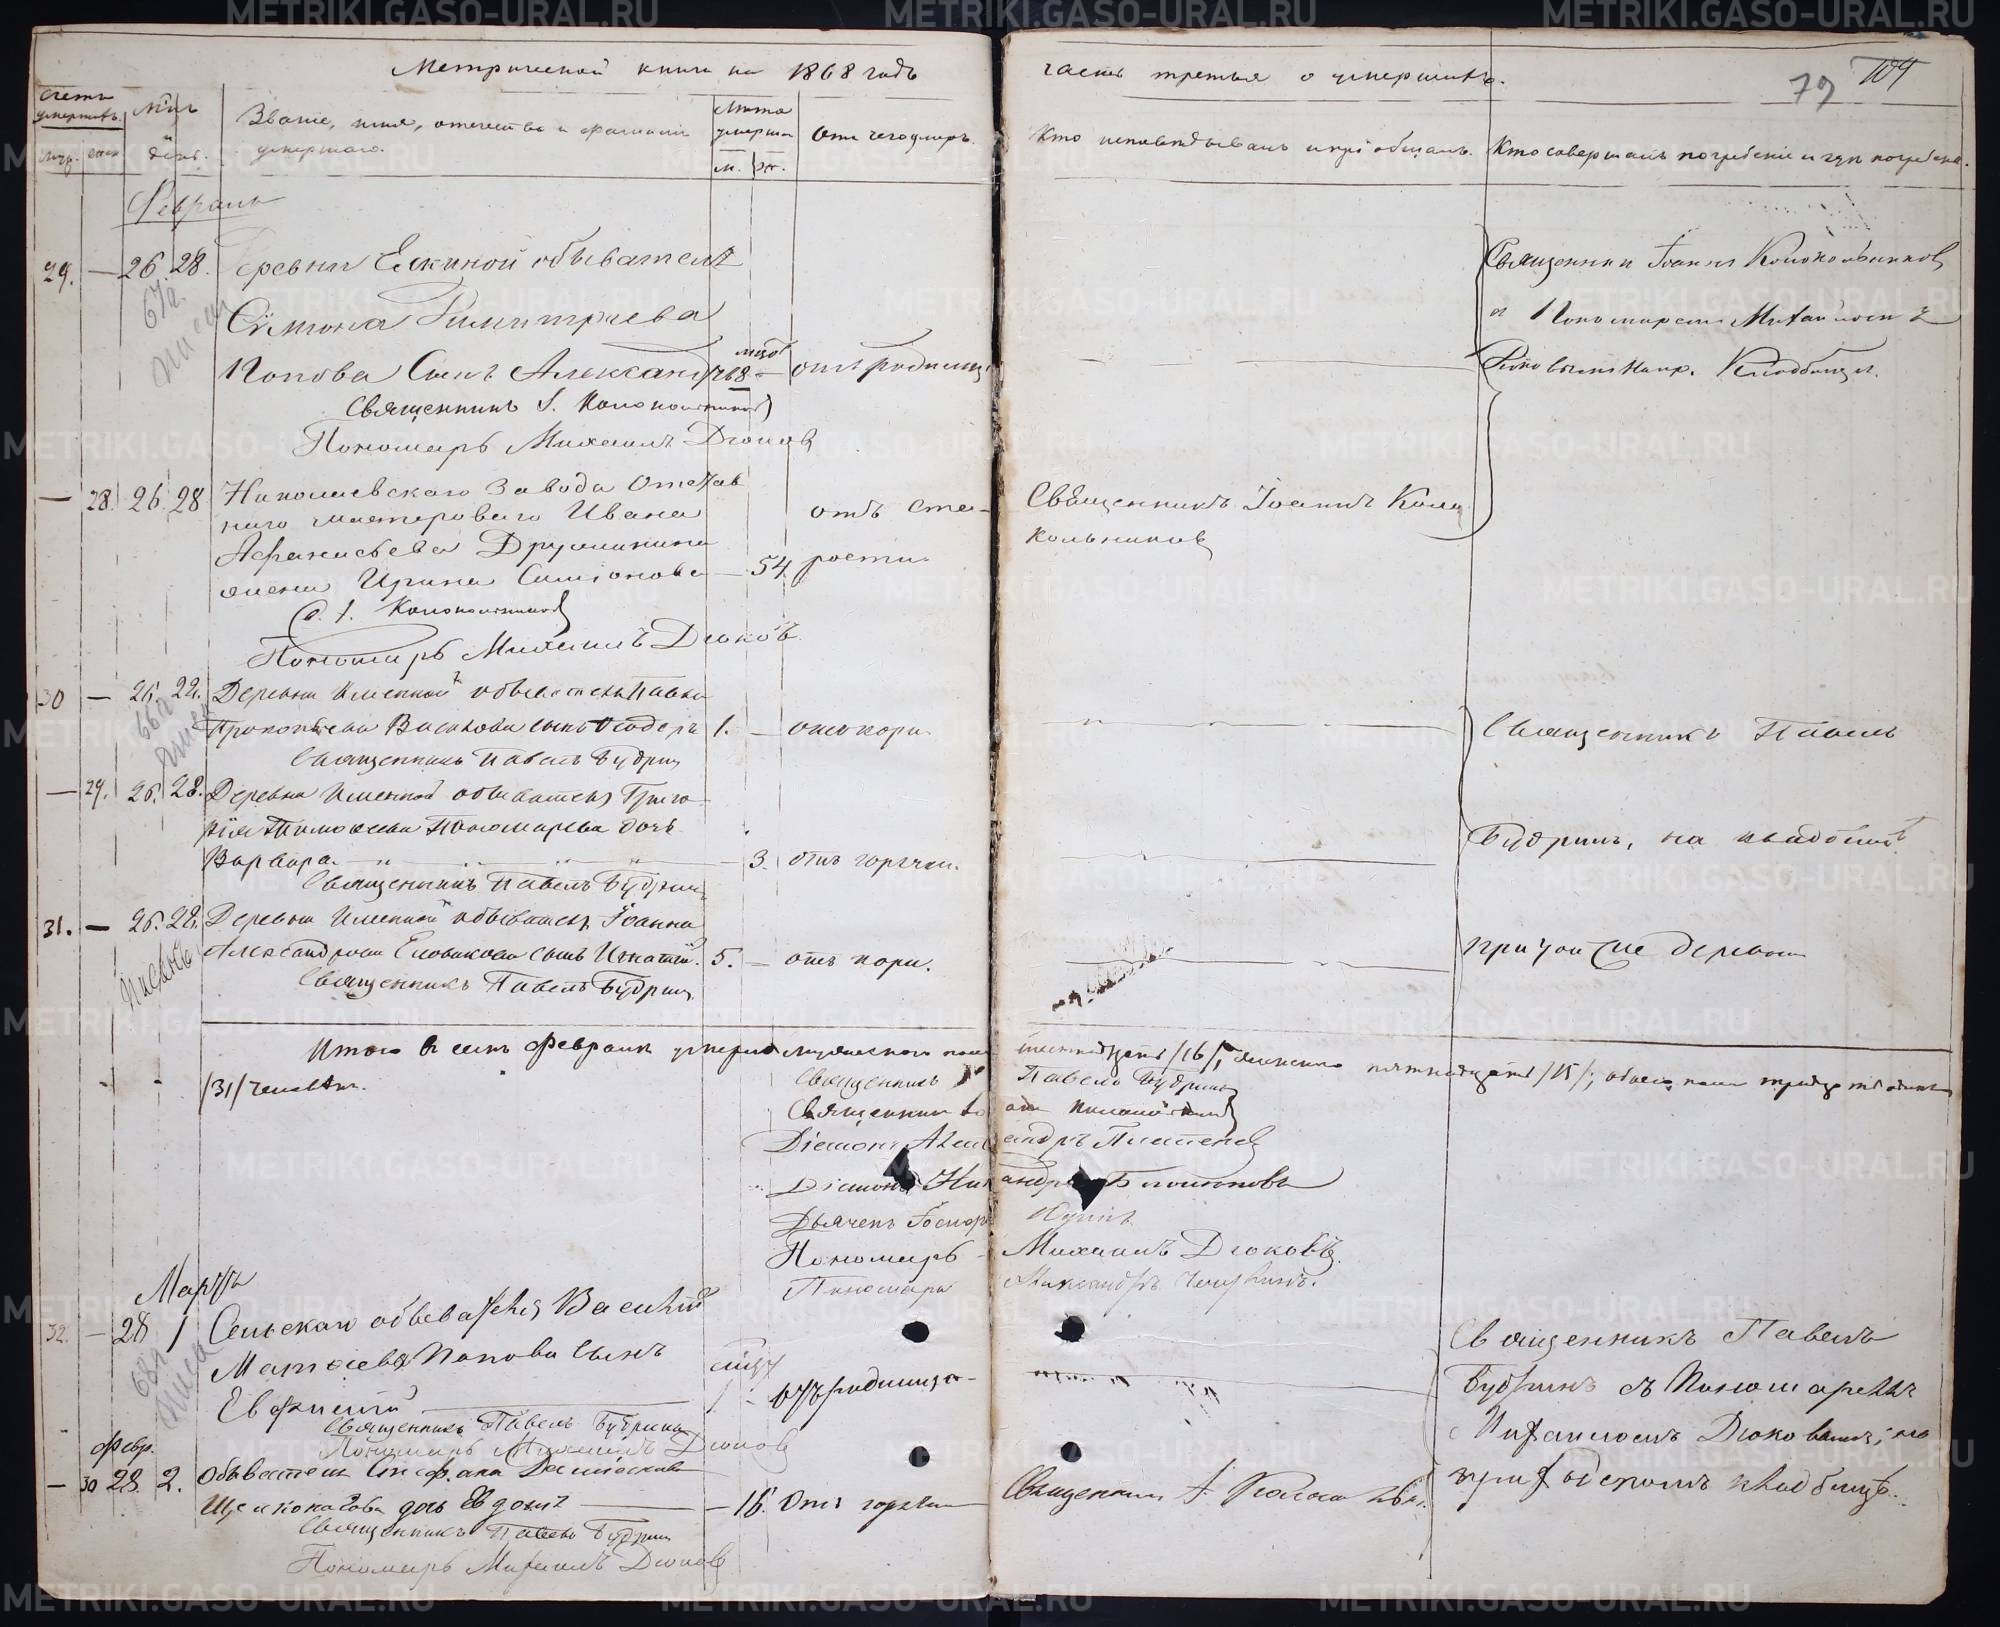 Метрической книги на 1868 годъ
часть третья о умершихъ.
79
104
Счетъ умершихъ.
Муж.
Женс.
Мѣс. и день.
Званіе, имя, отчество и фамилія
умершаго.
Лѣта умерша
м.
ж.
Отъ чего умеръ.
Кто исповѣдывалъ и пріобщалъ.
Кто совершалъ погребеніе и гдѣ погребены.
Февраль
29. — 26. 28.
Деревни Елкиной обывателя
Сѵмеона Димитріева
Попова Сынъ Александръ 8 мцов — отъ родимца
Священникъ І. Колокольниковъ
Пономарь Михаилъ Дюковъ
Священникъ Іоаннъ Колокольниковъ
съ Пономаремъ Михаиломъ
Дюковымъ на пр. Кладбищѣ.
— 28. 26. 28.
Николаевскаго Завода Отстав
наго мастероваго Ивана
Афанасьева Дружинина
жена Ирина Симеонова — 54
отъ ста-
рости.
С. І. Колокольниковъ
Пономарь Михаилъ Дюковъ
Священникъ Іоаннъ Коло
кольниковъ
30 — 26. 28.
Деревни Именной обывателя Павла
Прокопьева Сынъ Ѳеодоръ 1. — отъ кори.
Священникъ Павелъ Будринъ
Священникъ Павелъ
— 29. 26. 28.
Деревни Именной обывателя Григо
рія Тимоѳеева Пономарева дочь
Варвара — 3. отъ горячки.
Священникъ Павелъ Будринъ
Будринъ, на кладбищѣ
31. — 26. 28.
Деревни Именной обывателя Іоанна
Александрова сынъ Игнатій. 5. — отъ кори.
Священникъ Павелъ Будринъ
при той же деревни
Итого въ семъ Февралѣ умерло мужескаго пола шестнадцать /16/, женскаго пятнадцать /15/; обоего пола тридцать одинъ
/31/ человѣкъ.
Священникъ Павелъ Будринъ
Священникъ Іоаннъ Колокольниковъ
Діаконъ Александръ
Діаконъ Никандръ
Дьячекъ
Пономарь — Михаилъ Дюковъ
Пономарь Александръ
Мартъ
32. — 28 1
Сельскаго обывателя Василія
Матѳіева Попова Сынъ
Евфимій — 1 мцъ отъ родимца —
Священникъ Павелъ Будринъ
Пономарь Михаилъ Дюковъ
Священникъ Павелъ
Будринъ съ Пономаремъ
Михаиломъ Дюковымъ, на
приходскомъ кладбищѣ.
Февр.
— 30 28. 2.
Обывателя Стефана
дочь Евдокія — 16. Отъ горячки
Священникъ І. Колокольни.
Священникъ Павелъ Будринъ
Пономарь Михаилъ Дюковъ
METRIKI.GASO-URAL.RU